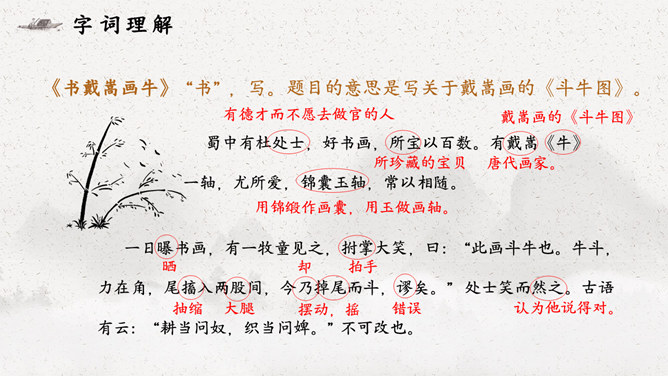 字词理解
《书戴嵩画牛》“书”，写。题目的意思是写关于戴嵩画的《斗牛图》。
有德才而不愿去做官的人
戴嵩画的《斗牛图》
蜀中有杜处士，好书画，所宝以百数。有戴嵩《牛》
所珍藏的宝贝
唐代画家。
一轴，尤所爱，锦囊玉轴，常以相随。
用锦缎作画囊，用玉做画轴。
一日曝书画，有一牧童见之，拊掌大笑，曰：“此画斗牛也。牛斗，
晒
却
拍手
力在角，尾搐入两股间，今乃掉尾而斗，谬矣。”处士笑而然之。古语
抽缩
大腿
摆动，摇
错误
认为他说得对。
有云：“耕当问奴，织当问婢。”不可改也。